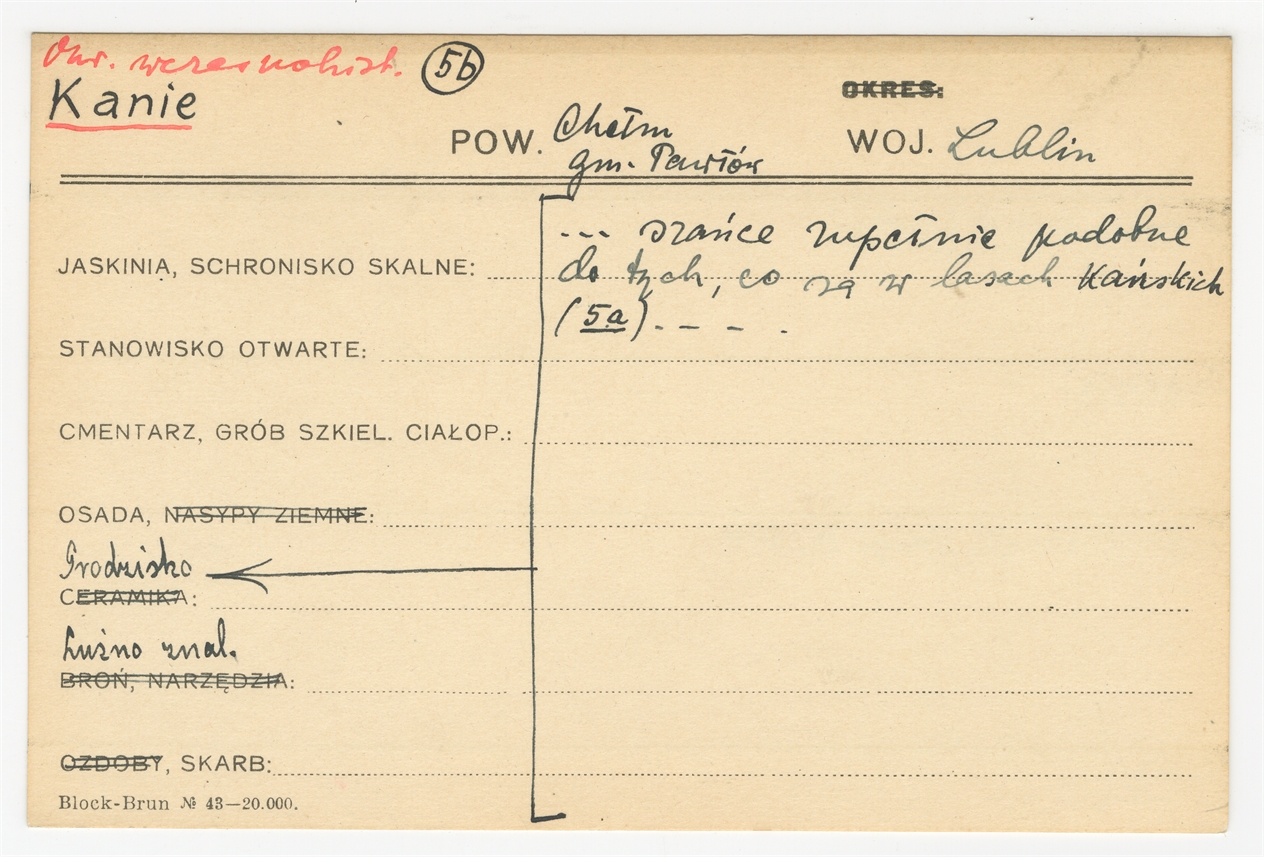 Okr. wczesnohist. 5b
Kanie
OKRES:
POW. Chełm WOJ. Lublin
gm. Pawłów
... szańce zupełnie podobne
JASKINIA, SCHRONISKO SKALNE: do tych, co są w lasach Kańskich
(5a) - - - .
STANOWISKO OTWARTE:
CMENTARZ, GRÓB SZKIEL. CIAŁOP.:
OSADA, NASYPY ZIEMNE:
Grodzisko
CERAMIKA:
Luźno znal.
BROŃ, NARZĘDZIA:
OZDOBY, SKARB:
Block-Brun № 43—20.000.